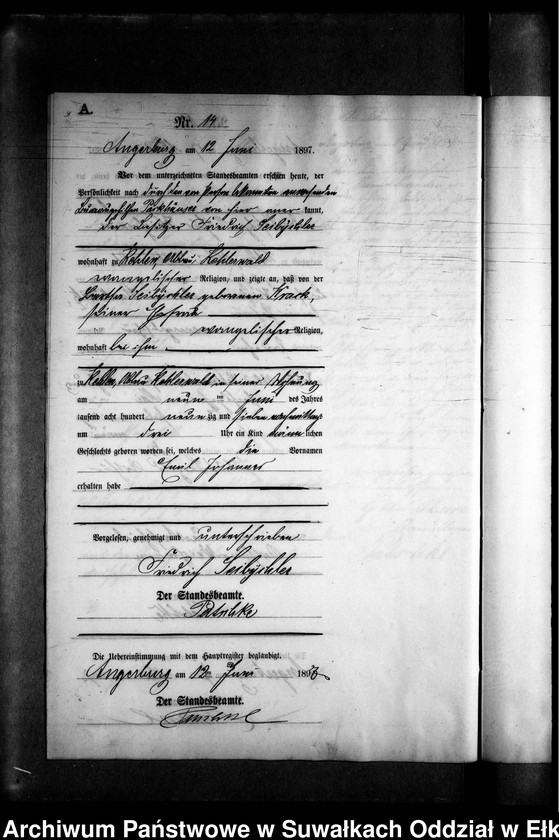 A.
Nr. 14
Angerburg am 12 Juni 1897.
Vor dem unterzeichneten Standesbeamten erschien heute, der
Persönlichkeit nach durch den von Person bekannten
von hier anerkannt,
der Besitzer Friedrich
wohnhaft zu Kehlen, Abbau Kehlerwald
evangelischer Religion, und zeigte an, daß von der
geborenen Krack,
seiner Ehefrau
evangelischer Religion,
wohnhaft bei ihm
zu Kehlen, Abbau Kehlerwald in seiner Wohnung
am neun ten Juni des Jahres
tausend acht hundert neun zig und sieben nachmittags
um drei Uhr ein Kind männlichen
Geschlechts geboren worden sei, welches die Vornamen
Emil Johannes
erhalten habe
Vorgelesen, genehmigt und unterschrieben
Friedrich
Der Standesbeamte.
Die Uebereinstimmung mit dem Hauptregister beglaubigt.
Angerburg am 12 Juni 1897
Der Standesbeamte.
Archiwum Państwowe w Suwałkach Oddział w Ełk